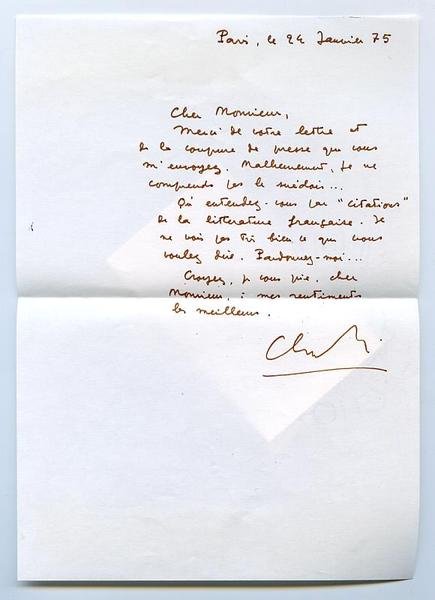 Paris, le 24 Janvier 75
Cher Monsieur,
Merci de votre lettre et
de la coupure de presse que vous
m'envoyez. Malheureusement, je ne
comprends pas le suédois...
Qu'entendez-vous par "citations"
de la littérature française. Je
ne vois pas très bien ce que vous
voulez dire. Pardonnez-moi...
Croyez, je vous prie, cher
Monsieur, à mes sentiments
les meilleurs.